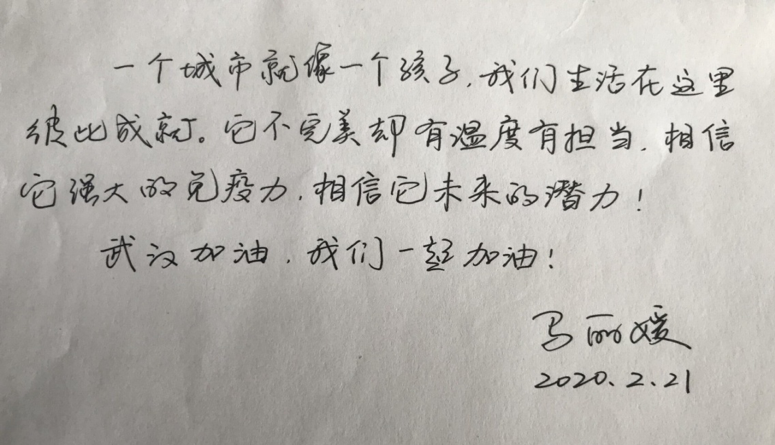 一个城市就像一个孩子，我们生活在这里
彼此成就。它不完美却有温度有担当，相信
它强大的免疫力，相信它未来的潜力！
武汉加油，我们一起加油！
马丽媛
2020.2.21